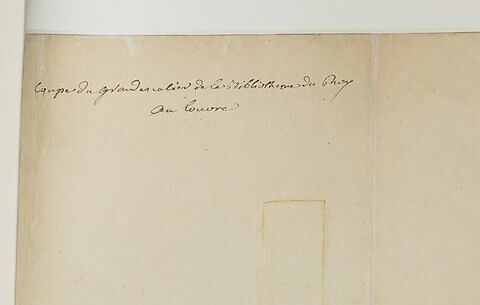 Coupe du grand escalier de la Bibliotheque du Roy
au louvre